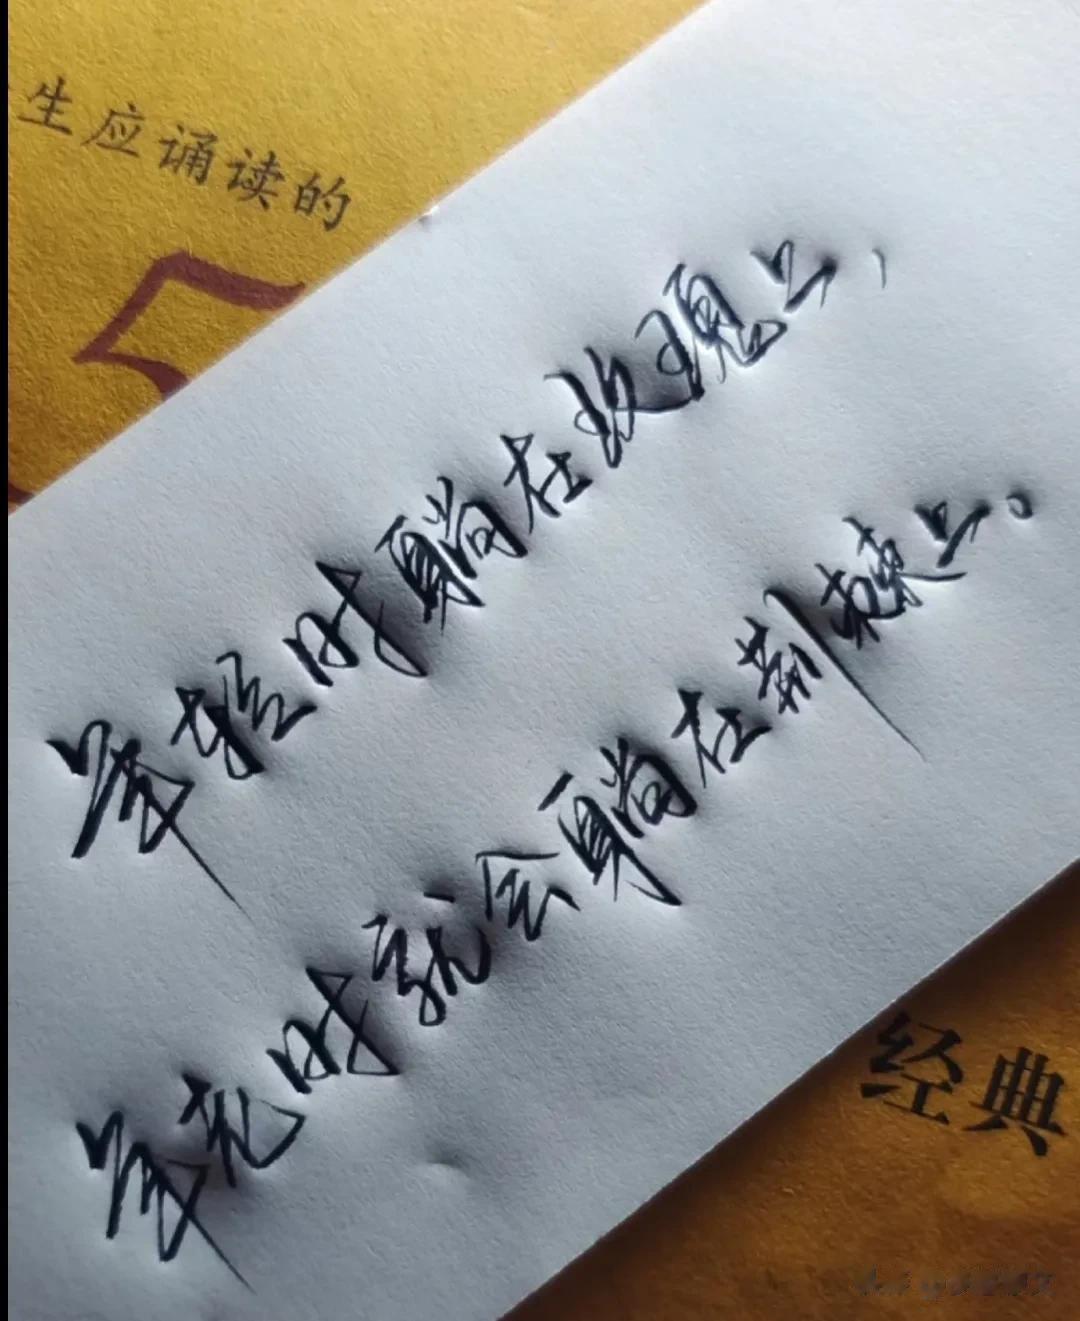 生应诵读的
年轻时躺在玫瑰上，
年老时就会躺在荆棘上。
经典